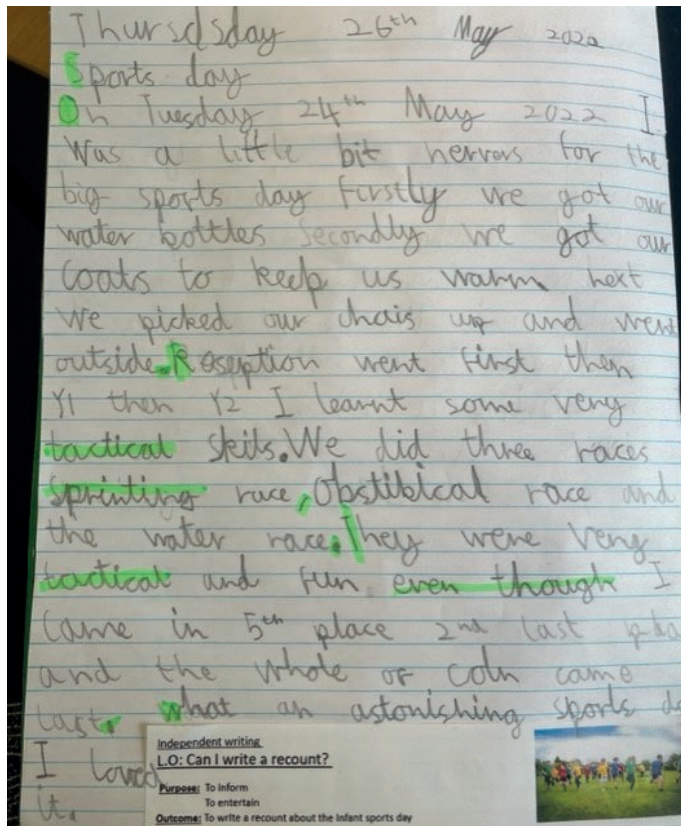 Thursdsday 26th May 2022
Sports day
On Tuesday 24th May 2022 I
Was a little bit nervors for the
big sports day firstly we got our
water bottles Secondly we got our
Coats to keep us warm next
We picked our chais up and went
outside. Roseption went first then
Y1 then Y2 I learnt some very
tactical skils. We did three races
sprinting race, Obstiblcal race and
the water race. They were very
tactical and fun even though I
Came in 5th place 2nd last
and the whole of coln came
last, what an astonishing sports
I loved
it.
Independent writing
L.O: Can I write a recount?
Purpose: To inform
To entertain
Outcome: To write a recount about the Infant sports day